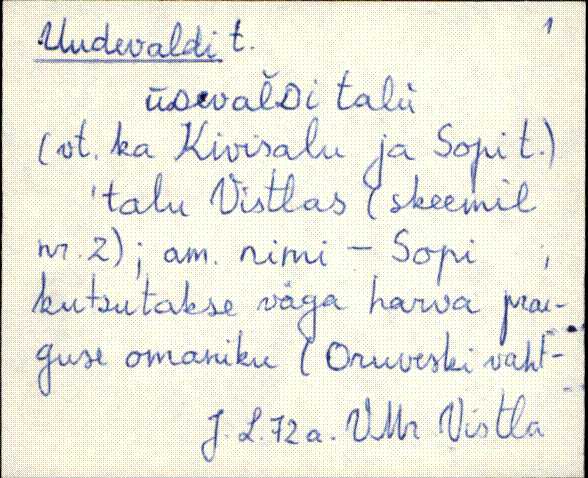 Uudevaldi t. 1
ūDevalDi talù
(vt. ka Kivisalu ja Sopi t.)
'talu Vistlas (skeemil
nr. 2); am. nimi – Sopi ,
kutsutakse väga harva prae-
guse omaniku (Oruveski vaht-
J. L. 72 a. VMr Vistla